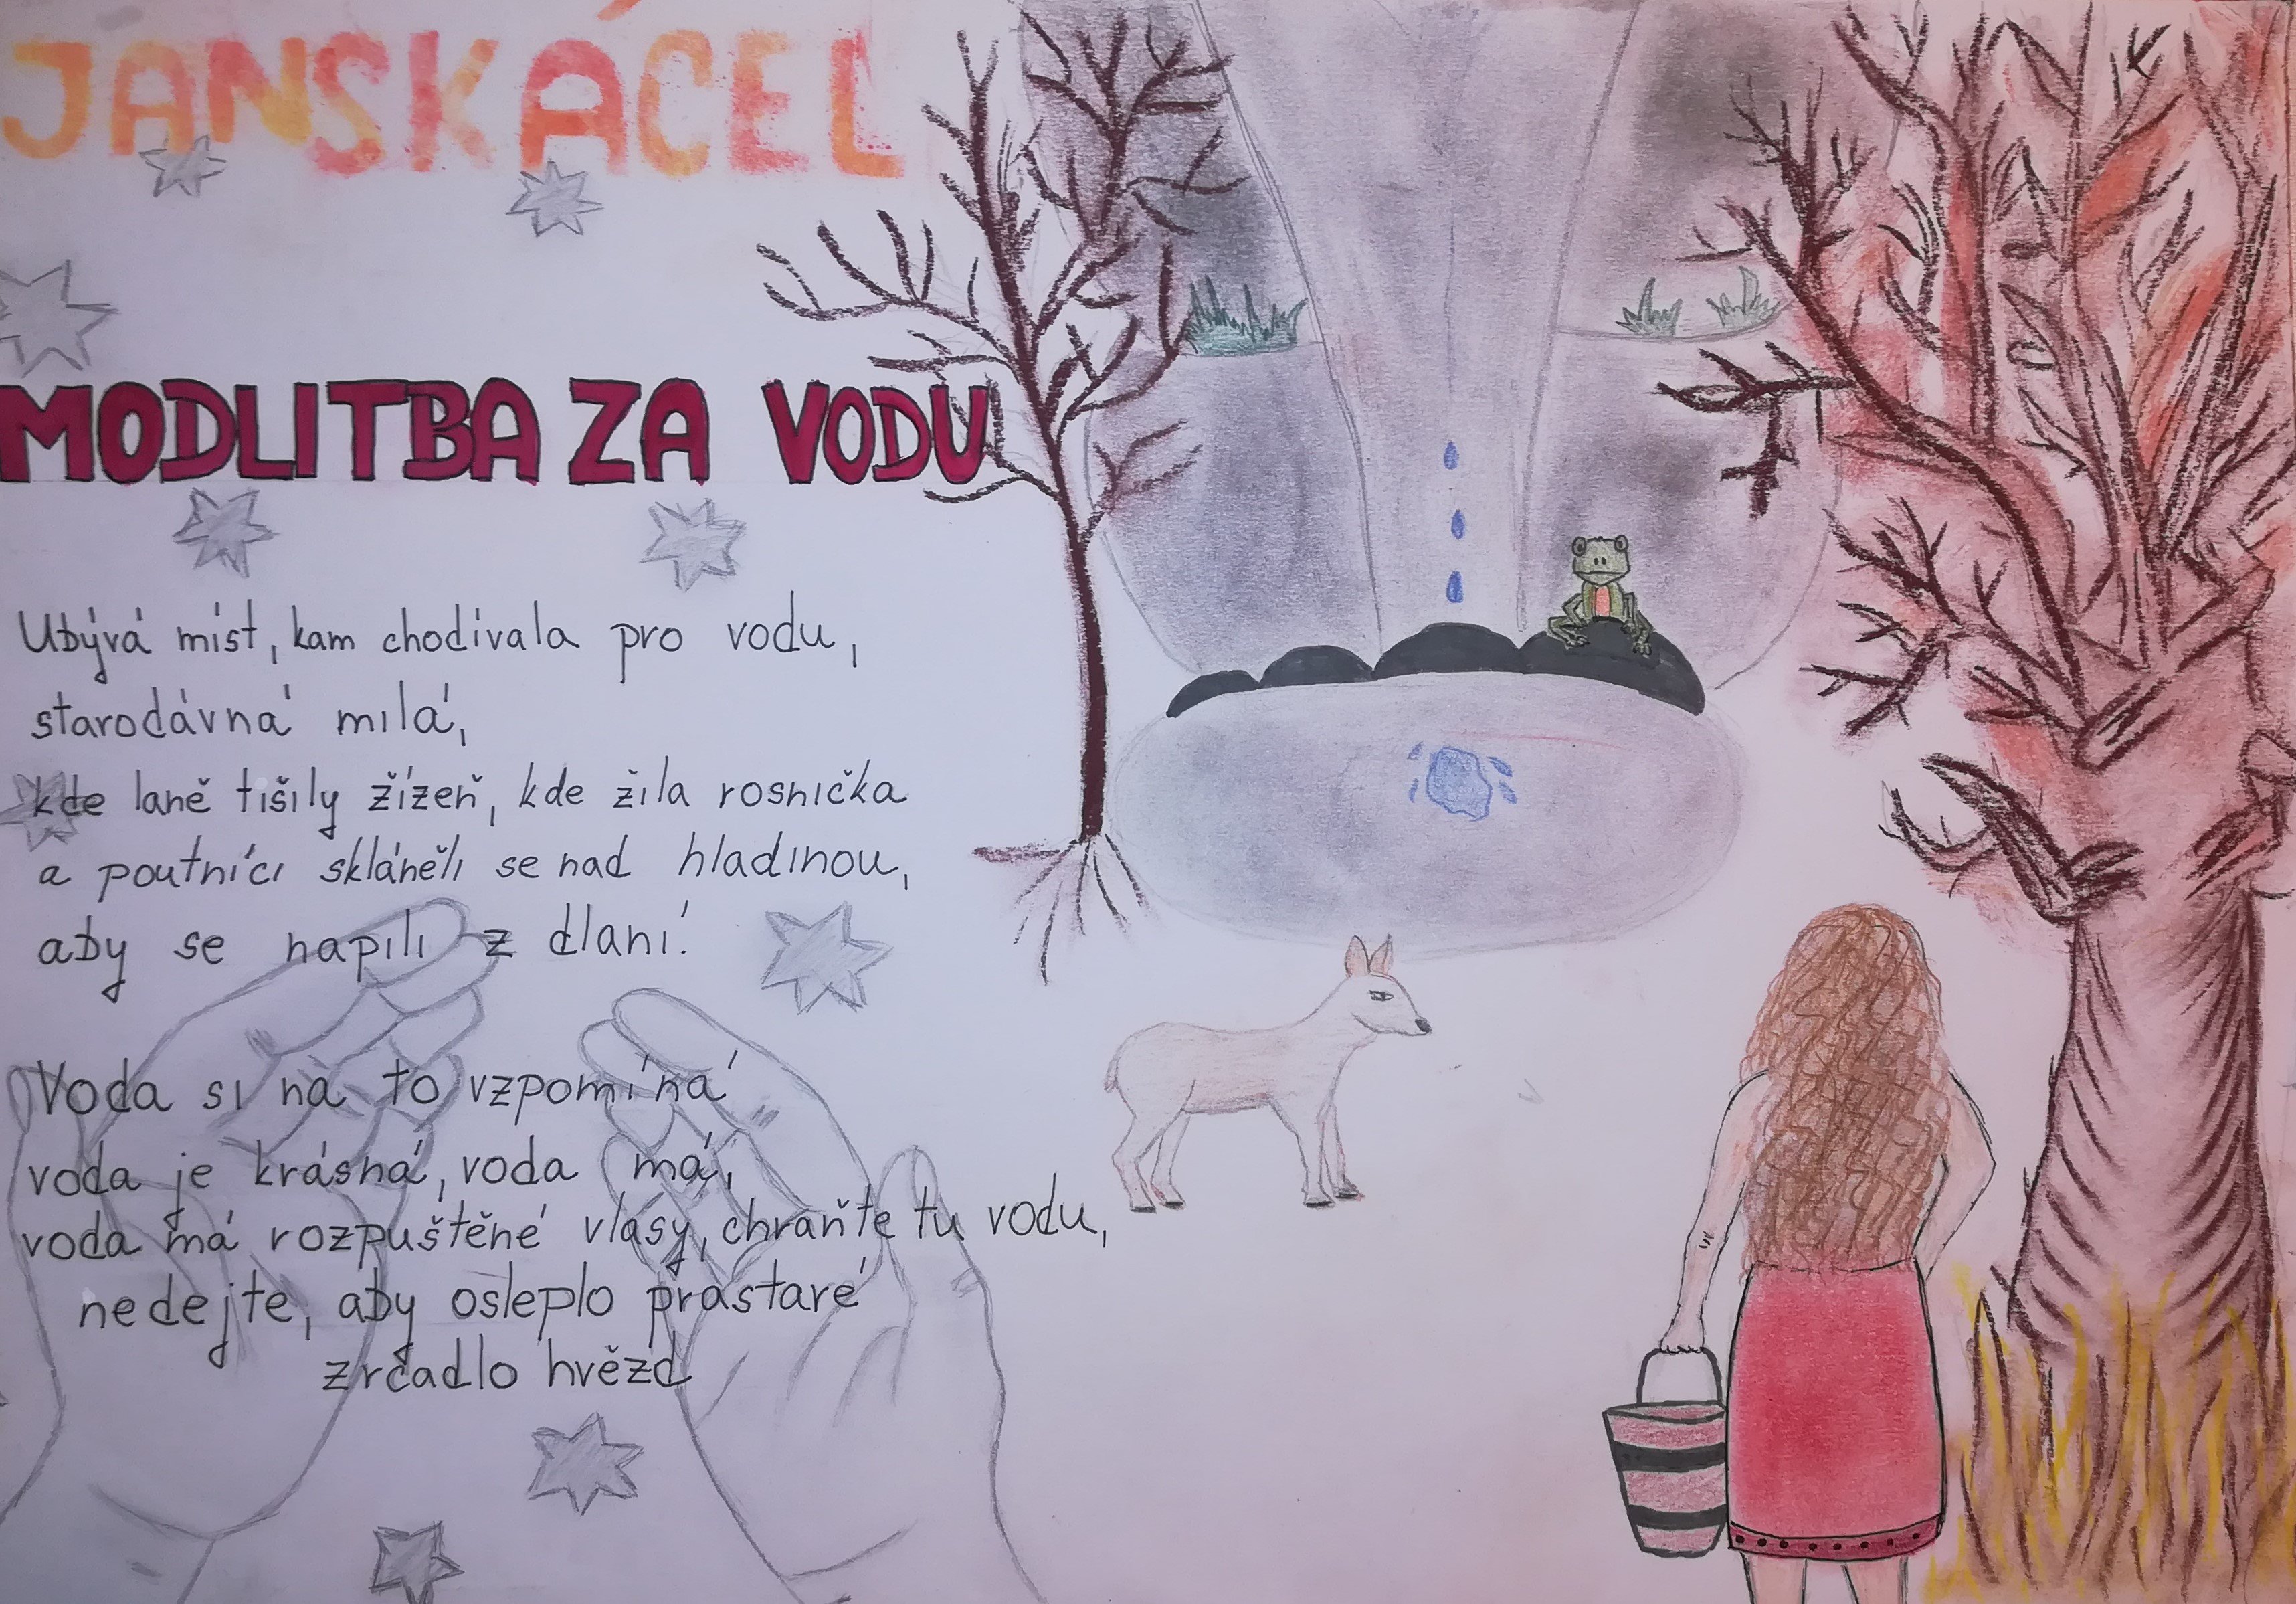 JAN SKÁCEL
MODLITBA ZA VODU
Ubývá míst, kam chodívala pro vodu,
starodávná milá,
kde laně tišily žízeň, kde žila rosnička
a poutníci skláněli se nad hladinou,
aby se napili z dlaní.
Voda si na to vzpomíná
voda je krásná, voda má,
voda má rozpuštěné vlasy, chraňte tu vodu,
nedejte, aby osleplo prastaré
zrcadlo hvězd